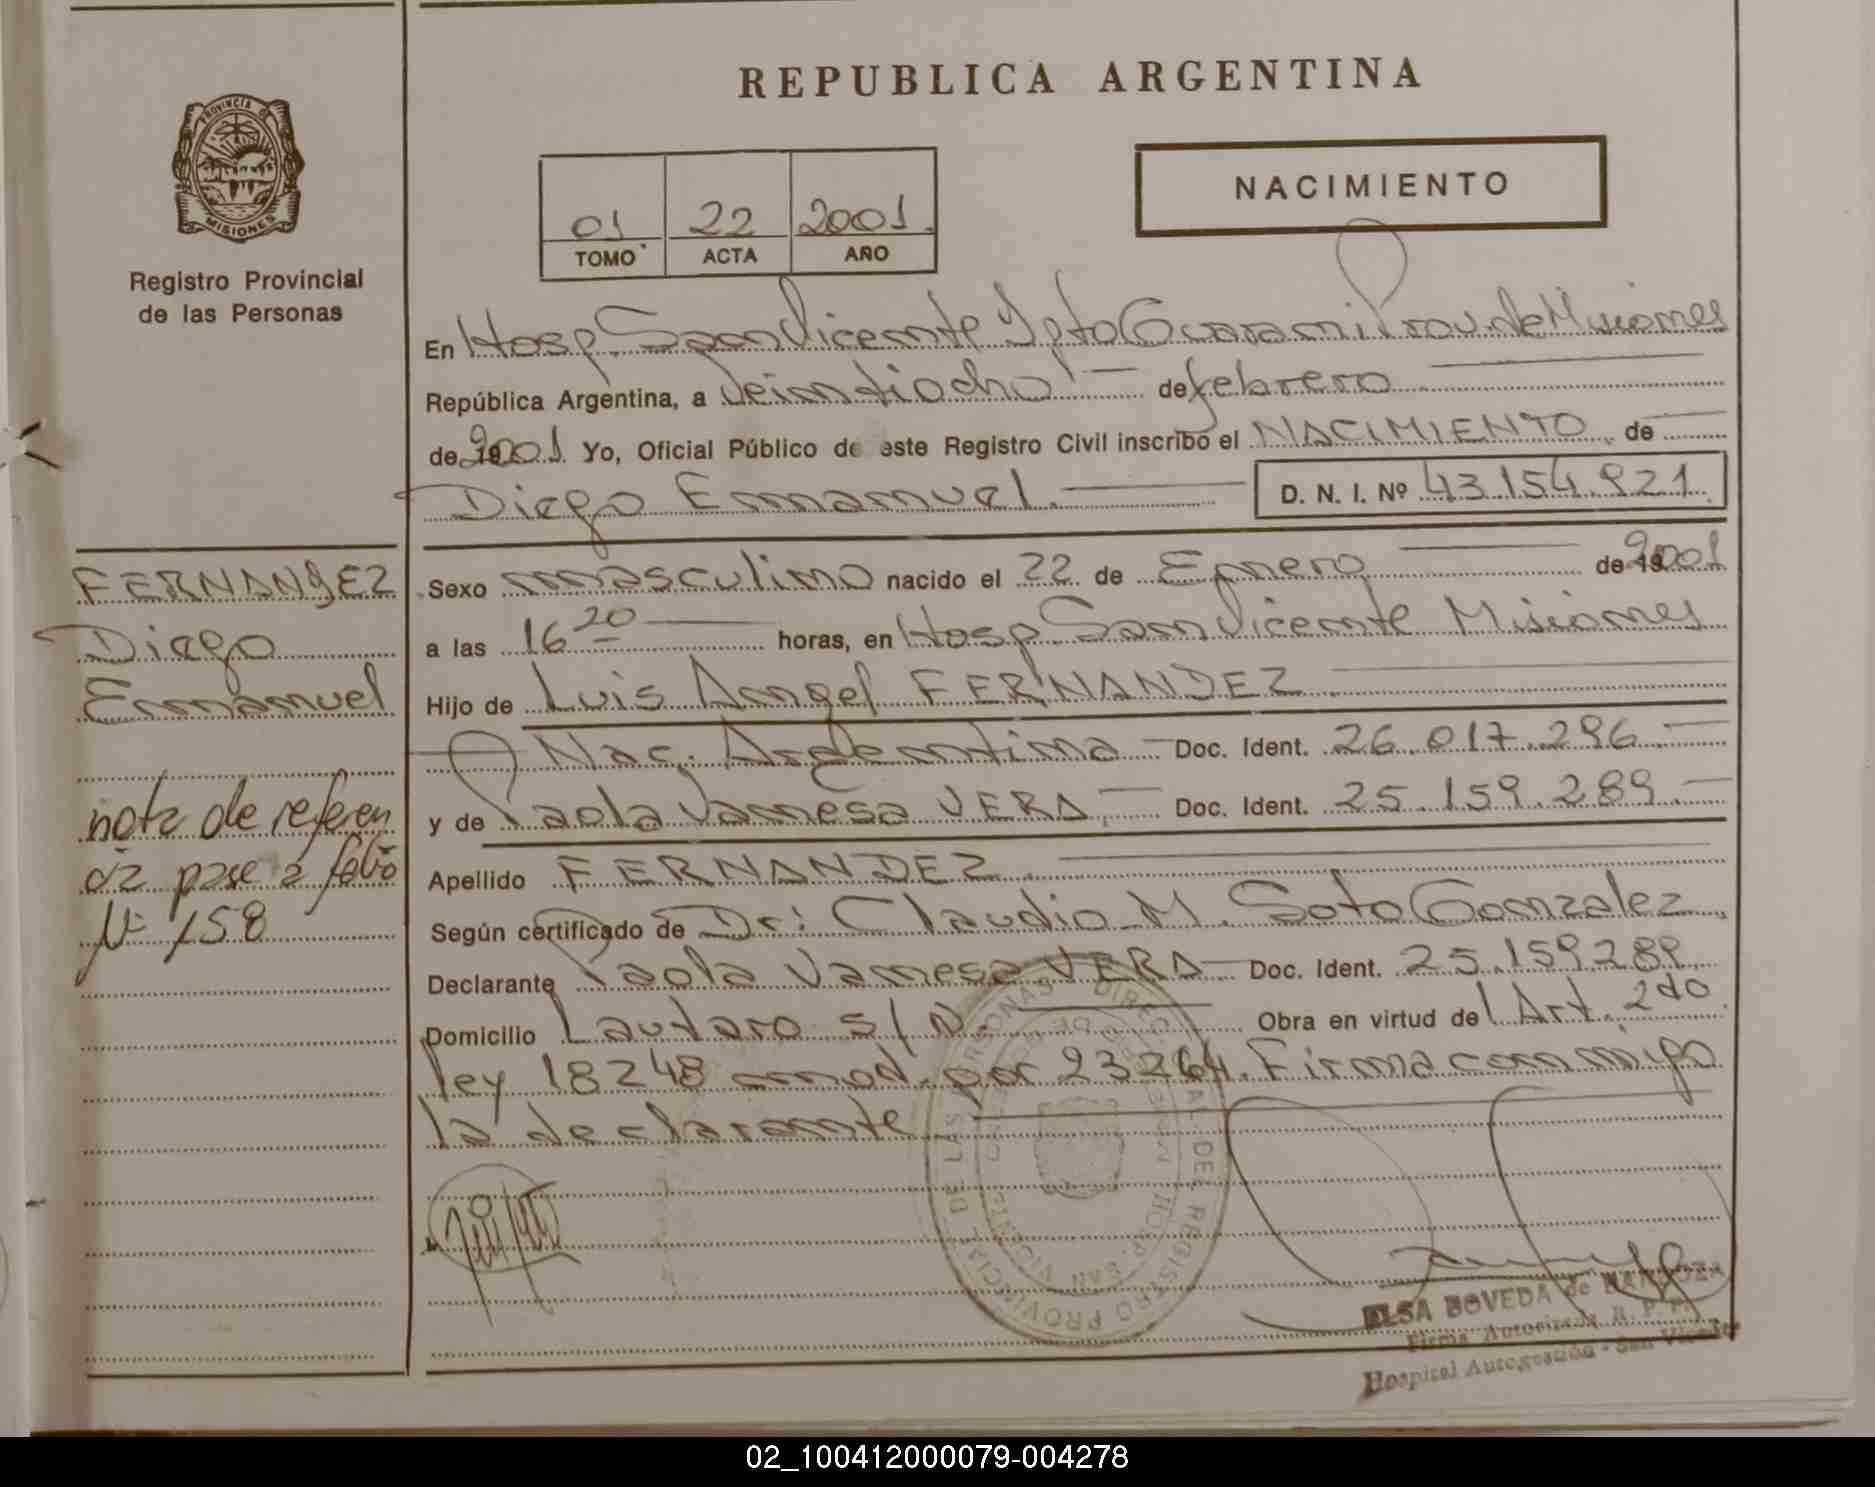 PROVINCIA D
MISIONES
Registro Provincial
de las Personas
REPUBLICA ARGENTINA
01 22 2001
TOMO ACTA AÑO
NACIMIENTO
En Hosp. San Vicente Dpto Guarani Prov. de Misiones
República Argentina, a Veintiocho de febrero
de 2001 Yo, Oficial Público de este Registro Civil inscribo el NACIMIENTO de
Diego Emmanuel. D. N. I. Nº 43.154.921
FERNANDEZ
Diego
Emmanuel
Sexo masculino nacido el 22 de Enero de 2001
a las 16 20 horas, en Hosp San Vicente Misiones
Hijo de Luis Angel FERNANDEZ
Nac. Argentina Doc. Ident. 26.017.296
y de Paola Vanesa VERA Doc. Ident. 25.159.289
Apellido FERNANDEZ
Según certificado de Dr: Claudio M. Soto Gonzalez
Declarante Paola Vanesa VERA Doc. Ident. 25.159289
Domicilio Lautaro s/N. Obra en virtud del Art. 2do
ley 18248 mod. por 23264. Firma conmigo
la declarante
nota de referen
cia pase a folio
Nº 158
ELSA BOVEDA de
Firma Autorizada R. P. P.
Hospital Autogestión - San Vicente
02_100412000079-004278